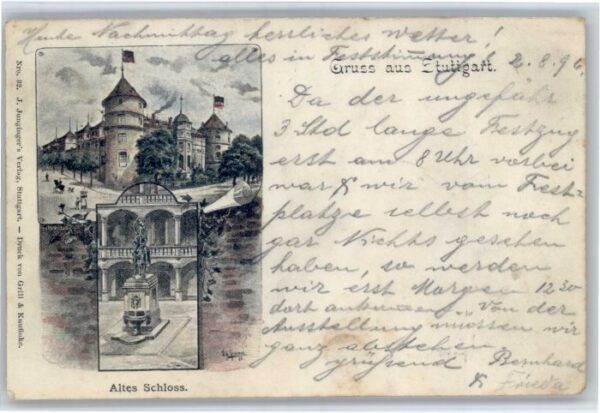 Heute Nachmittag herrliches Wetter!
alles in Feststimmung!
Gruss aus Stuttgart.
2.8.96.
Da der ungefähr
3 Std lange Festzug
erst am 8 Uhr vorbei
war & wir vom Fest-
platze selbst noch
gar Nichts gesehen
haben, so werden
wir erst Morgen 12 30
dort ankommen. Von der
Ausstellung müssen wir
ganz absehen.
grüßend Bernhard
& Frieda
Altes Schloss.
Nro. 32. J. Junginger's Verlag, Stuttgart. — Druck von Grill & Kaufmann.